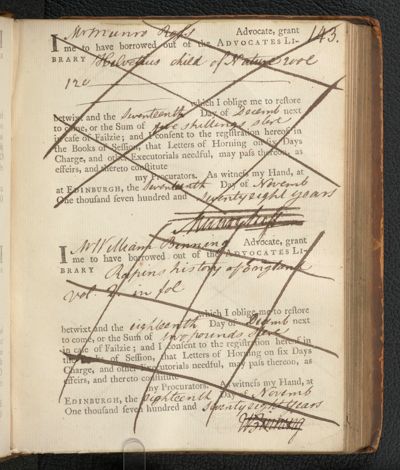 143.
I Mr Munro Ross Advocate, grant
me to have borrowed out of the ADVOCATES LI-
BRARY Helvetius child of Nature 2 vol
12o
which I oblige me to restore
betwixt and the Seventeenth Day of Decemb next
to come, or the Sum of five shillings sterl
in case of Failzie; and I consent to the registration hereof in
the Books of Session, that Letters of Horning on six Days
Charge, and other Executorials needful, may pass thereon, as
effeirs, and thereto constitute
my Procurators. As witness my Hand, at
at EDINBURGH, the Seventeenth Day of Novemb
One thousand seven hundred and seventy eight years
I Mr William Binning Advocate, grant
me to have borrowed out of the ADVOCATES LI-
BRARY Rapins history of England
vol. 2. in fol
which I oblige me to restore
betwixt and the eighteenth Day of Decemb next
to come, or the Sum of two pounds
in case of Failzie; and I consent to the registration hereof in
the Books of Session, that Letters of Horning on six Days
Charge, and other Executorials needful, may pass thereon, as
effeirs, and thereto constitute
my Procurators. As witness my Hand, at
EDINBURGH, the eighteenth Day of Novemb
One thousand seven hundred and Seventy eight years
W Binning